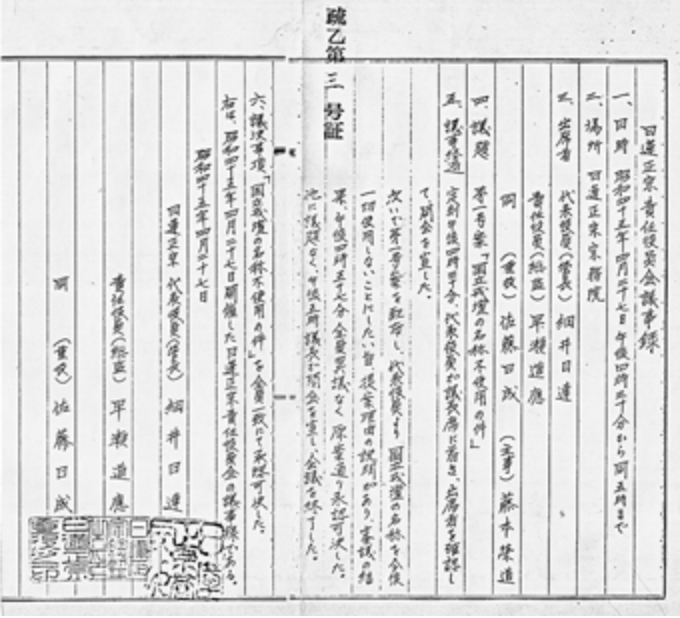 疏乙第三号証
日蓮正宗責任役員会議事録
一、日時 昭和四十五年四月二十七日午後四時三十分から同五時まで
二、場所 日蓮正宗宗務院
三、出席者 代表役員(管長)細井日達
責任役員(総監)早瀬道應
同 (重役)佐藤日成 (主事)藤本栄道
四、議題 第一号案「国立戒壇の名称不使用の件」
五、議事経過 定刻午後四時三十分、代表役員が議長席に着き、出席者を確認し
て開会を宣した。
次いで第一号案を配布し、代表役員より国立戒壇の名称を今後
一切使用しないことにしたい旨、提案理由の説明があり、審議の結
果、午後四時五十七分全員異議なく原案通り承認可決した。
他に議題なく、午後五時議長が閉会を宣し、会議を終了した。
六、議決事項、「国立戒壇の名称不使用の件」を全員一致にて承認可決した。
右は、昭和四十五年四月二十七日開催した日蓮正宗責任役員会の議事録である。
昭和四十五年四月二十七日
日蓮正宗 代表役員(管長)細井日達
責任役員(総監)早瀬道應
同 (重役)佐藤日成